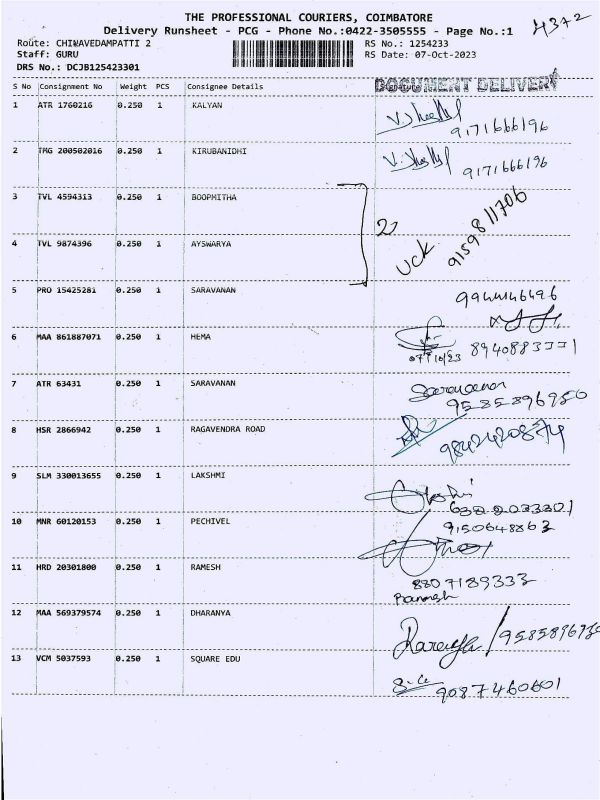 THE PROFESSIONAL COURIERS, COIMBATORE
4372
Delivery Runsheet - PCG - Phone No.:0422-3505555 - Page No.:1
Route: CHINAVEDAMPATTI 2 RS No.: 1254233
Staff: GURU RS Date: 07-Oct-2023
DRS No.: DCJB125423301
DOCUMENT DELIVERY
S No Consignment No Weight PCS Consignee Details
1 ATR 1760216 0.250 1 KALYAN
9171666196
2 TMG 200502016 0.250 1 KIRUBANIDHI
9171666196
3 TVL 4594313 0.250 1 BOOPMITHA
2 9159811706
4 TVL 9874396 0.250 1 AYSWARYA
UCK
5 PRO 15425281 0.250 1 SARAVANAN
9944146496
6 MAA 861887071 0.250 1 HEMA
07/10/23 8940883771
7 ATR 63431 0.250 1 SARAVANAN
Saravanan
9585896950
8 HSR 2866942 0.250 1 RAGAVENDRA ROAD
9842420874
9 SLM 330013655 0.250 1 LAKSHMI
6382203301
10 MNR 60120153 0.250 1 PECHIVEL
9150648863
11 HRD 20301800 0.250 1 RAMESH
8807189333
Ramesh
12 MAA 569379574 0.250 1 DHARANYA
13 VCM 5037593 0.250 1 SQUARE EDU
9087460601